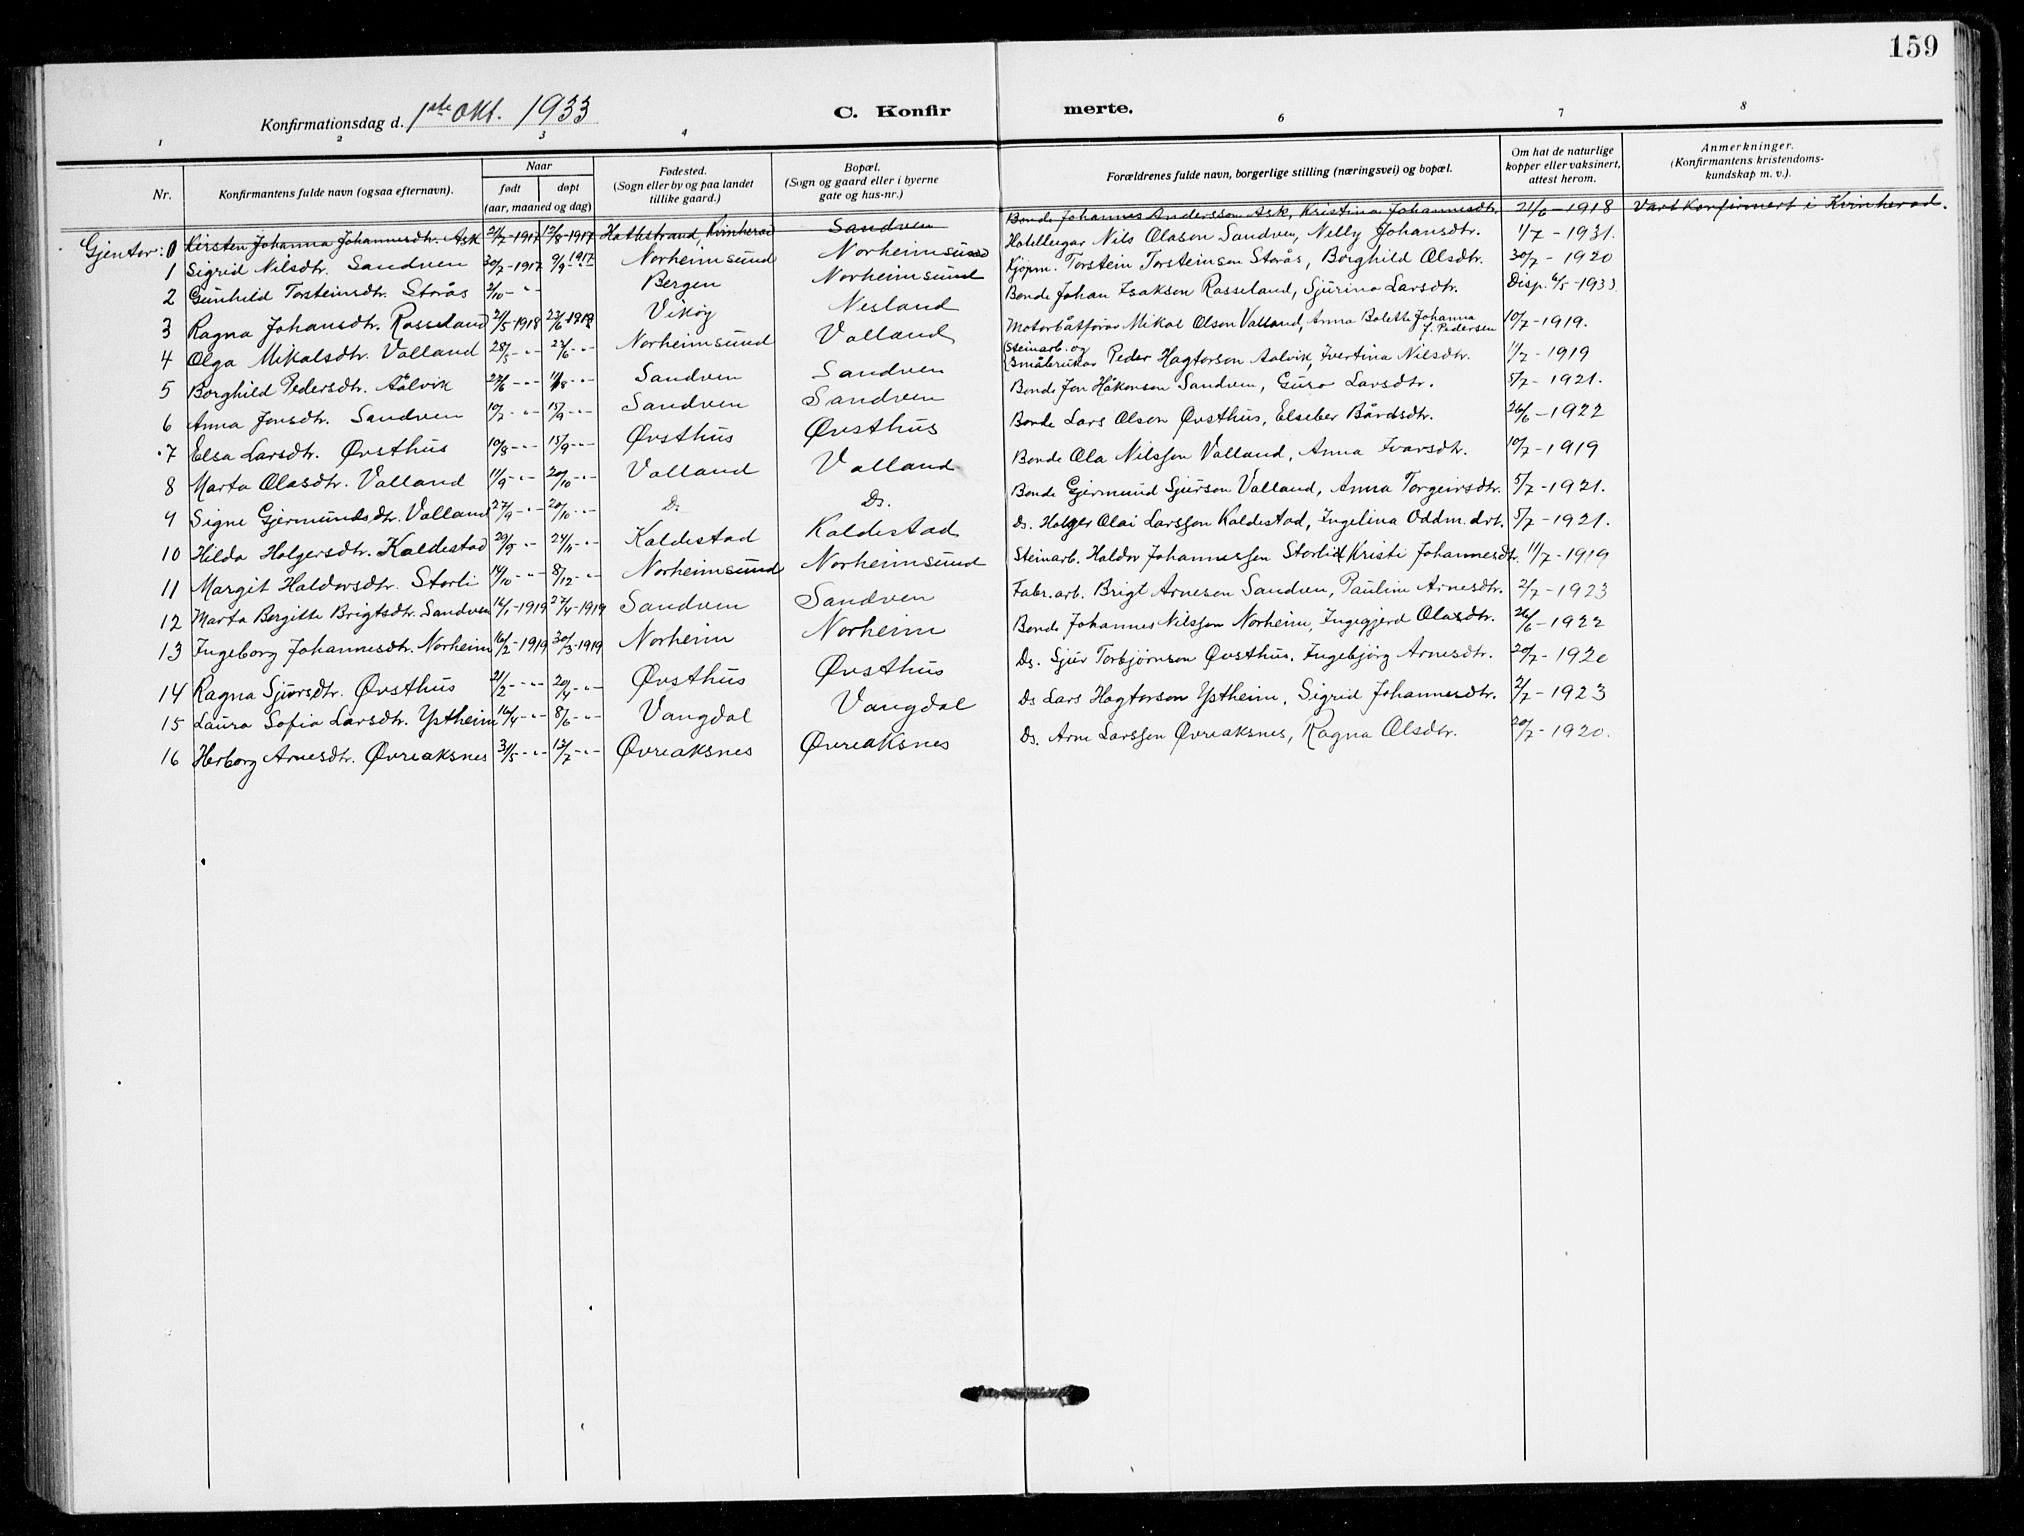 159
Konfirmationsdag d. 1ste Okt. 1933
C. Konfirmerte.
1 2 3 4 6 7 8
Nr. | Konfirmantens fulde navn (ogsaa efternavn). | Naar født | døpt (aar, maaned og dag) | Fødested. (Sogn eller by og paa landet tillike gaard.) | Bopæl. (Sogn og gaard eller i byerne gate og hus-nr.) | Forældrenes fulde navn, borgerlige stilling (næringsvei) og bopæl. | Om hat de naturlige kopper eller vaksinert, attest herom. | Anmerkninger. (Konfirmantens kristendoms-kundskap m. v.).
Gjentor: 0 Kirsten Johanna Johannesdtr. Ask 21/7-1917 12/8-1917 Hattstrand, Kvinherad Sandven Bonde Johannes Andersson Ask, Kristina Johannesdtr. 21/6-1918 Vart konfirmert i Kvinherad.
1 Sigrid Nilsdtr. Sandven 30/7-1917 9/9 1917 Norheimsund Norheimsund Hotelleigar Nils Olason Sandven, Nelly Johansdtr. 1/7-1931.
2 Gunhild Torsteinsdtr. Storås 2/10-"- Bergen Norheimsund Kjøpm. Torstein Torsteinson Storås, Borghild Olsdtr. 30/7-1920
3 Ragna Johansdtr. Rosseland 21/5-1918 23/6-1918 Vikøy Nesland Bonde Johan Isakson Rosseland, Sjurina Larsdtr. Disp. 6/5-1933.
4 Olga Mikalsdtr. Valland 28/5-"- 23/6-"- Norheimsund Valland Motorbåtførar Mikal Olson Valland, Anna Bolette Johanna J. Pedersen 10/7-1919.
5 Borghild Pedersdtr. Aalvik 27/6-"- 11/8-"- Sandven Sandven Steinarb. og Småbrukar Peder Hagtorson Aalvik, Ivertina Nilsdtr. 11/7-1919
6 Anna Jonsdtr. Sandven 10/7-"- 15/9-"- Sandven Sandven Bonde Jon Håkonson Sandven, Guro Larsdtr. 5/7-1921.
7 Elsa Larsdtr. Øvsthus 10/8-"- 15/9-"- Øvsthus Øvsthus Bonde Lars Olson Øvsthus, Elseber Bårdsdtr. 26/6-1922
8 Marta Olasdtr. Valland 11/9-"- 20/10-"- Valland Valland Bonde Ola Nilsson Valland, Anna Ivarsdtr. 10/7-1919
9 Signe Gjermundsdtr. Valland 27/9-"- 20/10-"- Ds. Ds. Bonde Gjermund Sjurson Valland, Anna Torgeirsdtr. 5/7-1921.
10 Hilda Holgersdtr. Kaldestad 29/9-"- 24/11-"- Kaldestad Kaldestad Ds. Holger Olai Larsson Kaldestad, Ingelina Oddm.dtr. 5/7-1921.
11 Margit Haldorsdtr. Storli 14/10-"- 8/12-"- Norheimsund Norheimsund Steinarb. Haldor Johannesson Storli, Kristi Johannesdtr. 11/7-1919
12 Marta Bergitte Brigtsdtr. Sandven 16/1-1919 27/4-1919 Sandven Sandven Fabr.arb. Brigt Arneson Sandven, Pauline Arnesdtr. 2/7-1923
13 Ingeborg Johannesdtr. Norheim 16/2-1919 30/3-1919 Norheim Norheim Bonde Johannes Nilsson Norheim, Ingegjerd Olasdtr. 26/6-1922
14 Ragna Sjursdtr. Øvsthus 21/2-"- 20/4-"- Øvsthus Øvsthus Ds. Sjur Torbjørnson Øvsthus, Ingebjørg Arnesdtr. 20/7-1920
15 Laura Sofia Larsdtr. Ystheim 16/4-"- 8/6-"- Vangdal Vangdal Ds Lars Hagtorson Ystheim, Sigrid Johannesdtr. 2/7-1923
16 Herborg Arnesdtr. Øvreaksnes 31/5-"- 13/7-"- Øvreaksnes Øvreaksnes Ds. Arne Larsson Øvreaksnes, Ragna Olsdtr. 20/7-1920.